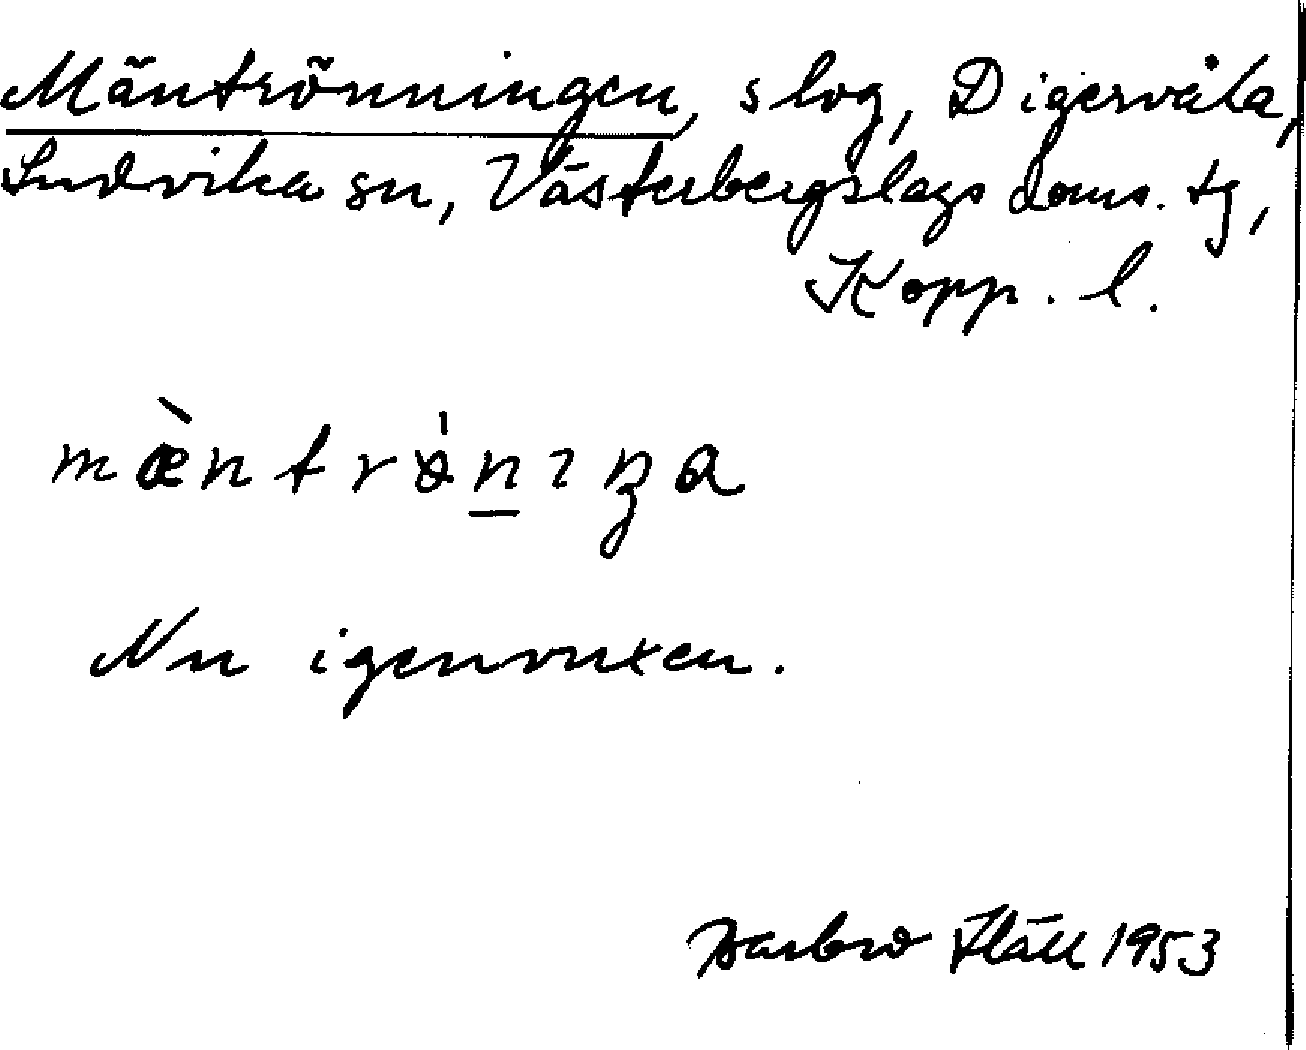 Mäntrönningen, slog, Digervåla,
Ludvika sn, Västerbergslags doms. tg,
Kopp. l.
mæ̀ntrǿn̲ıŋa
Nu igenvuxen.
Barbro 1953